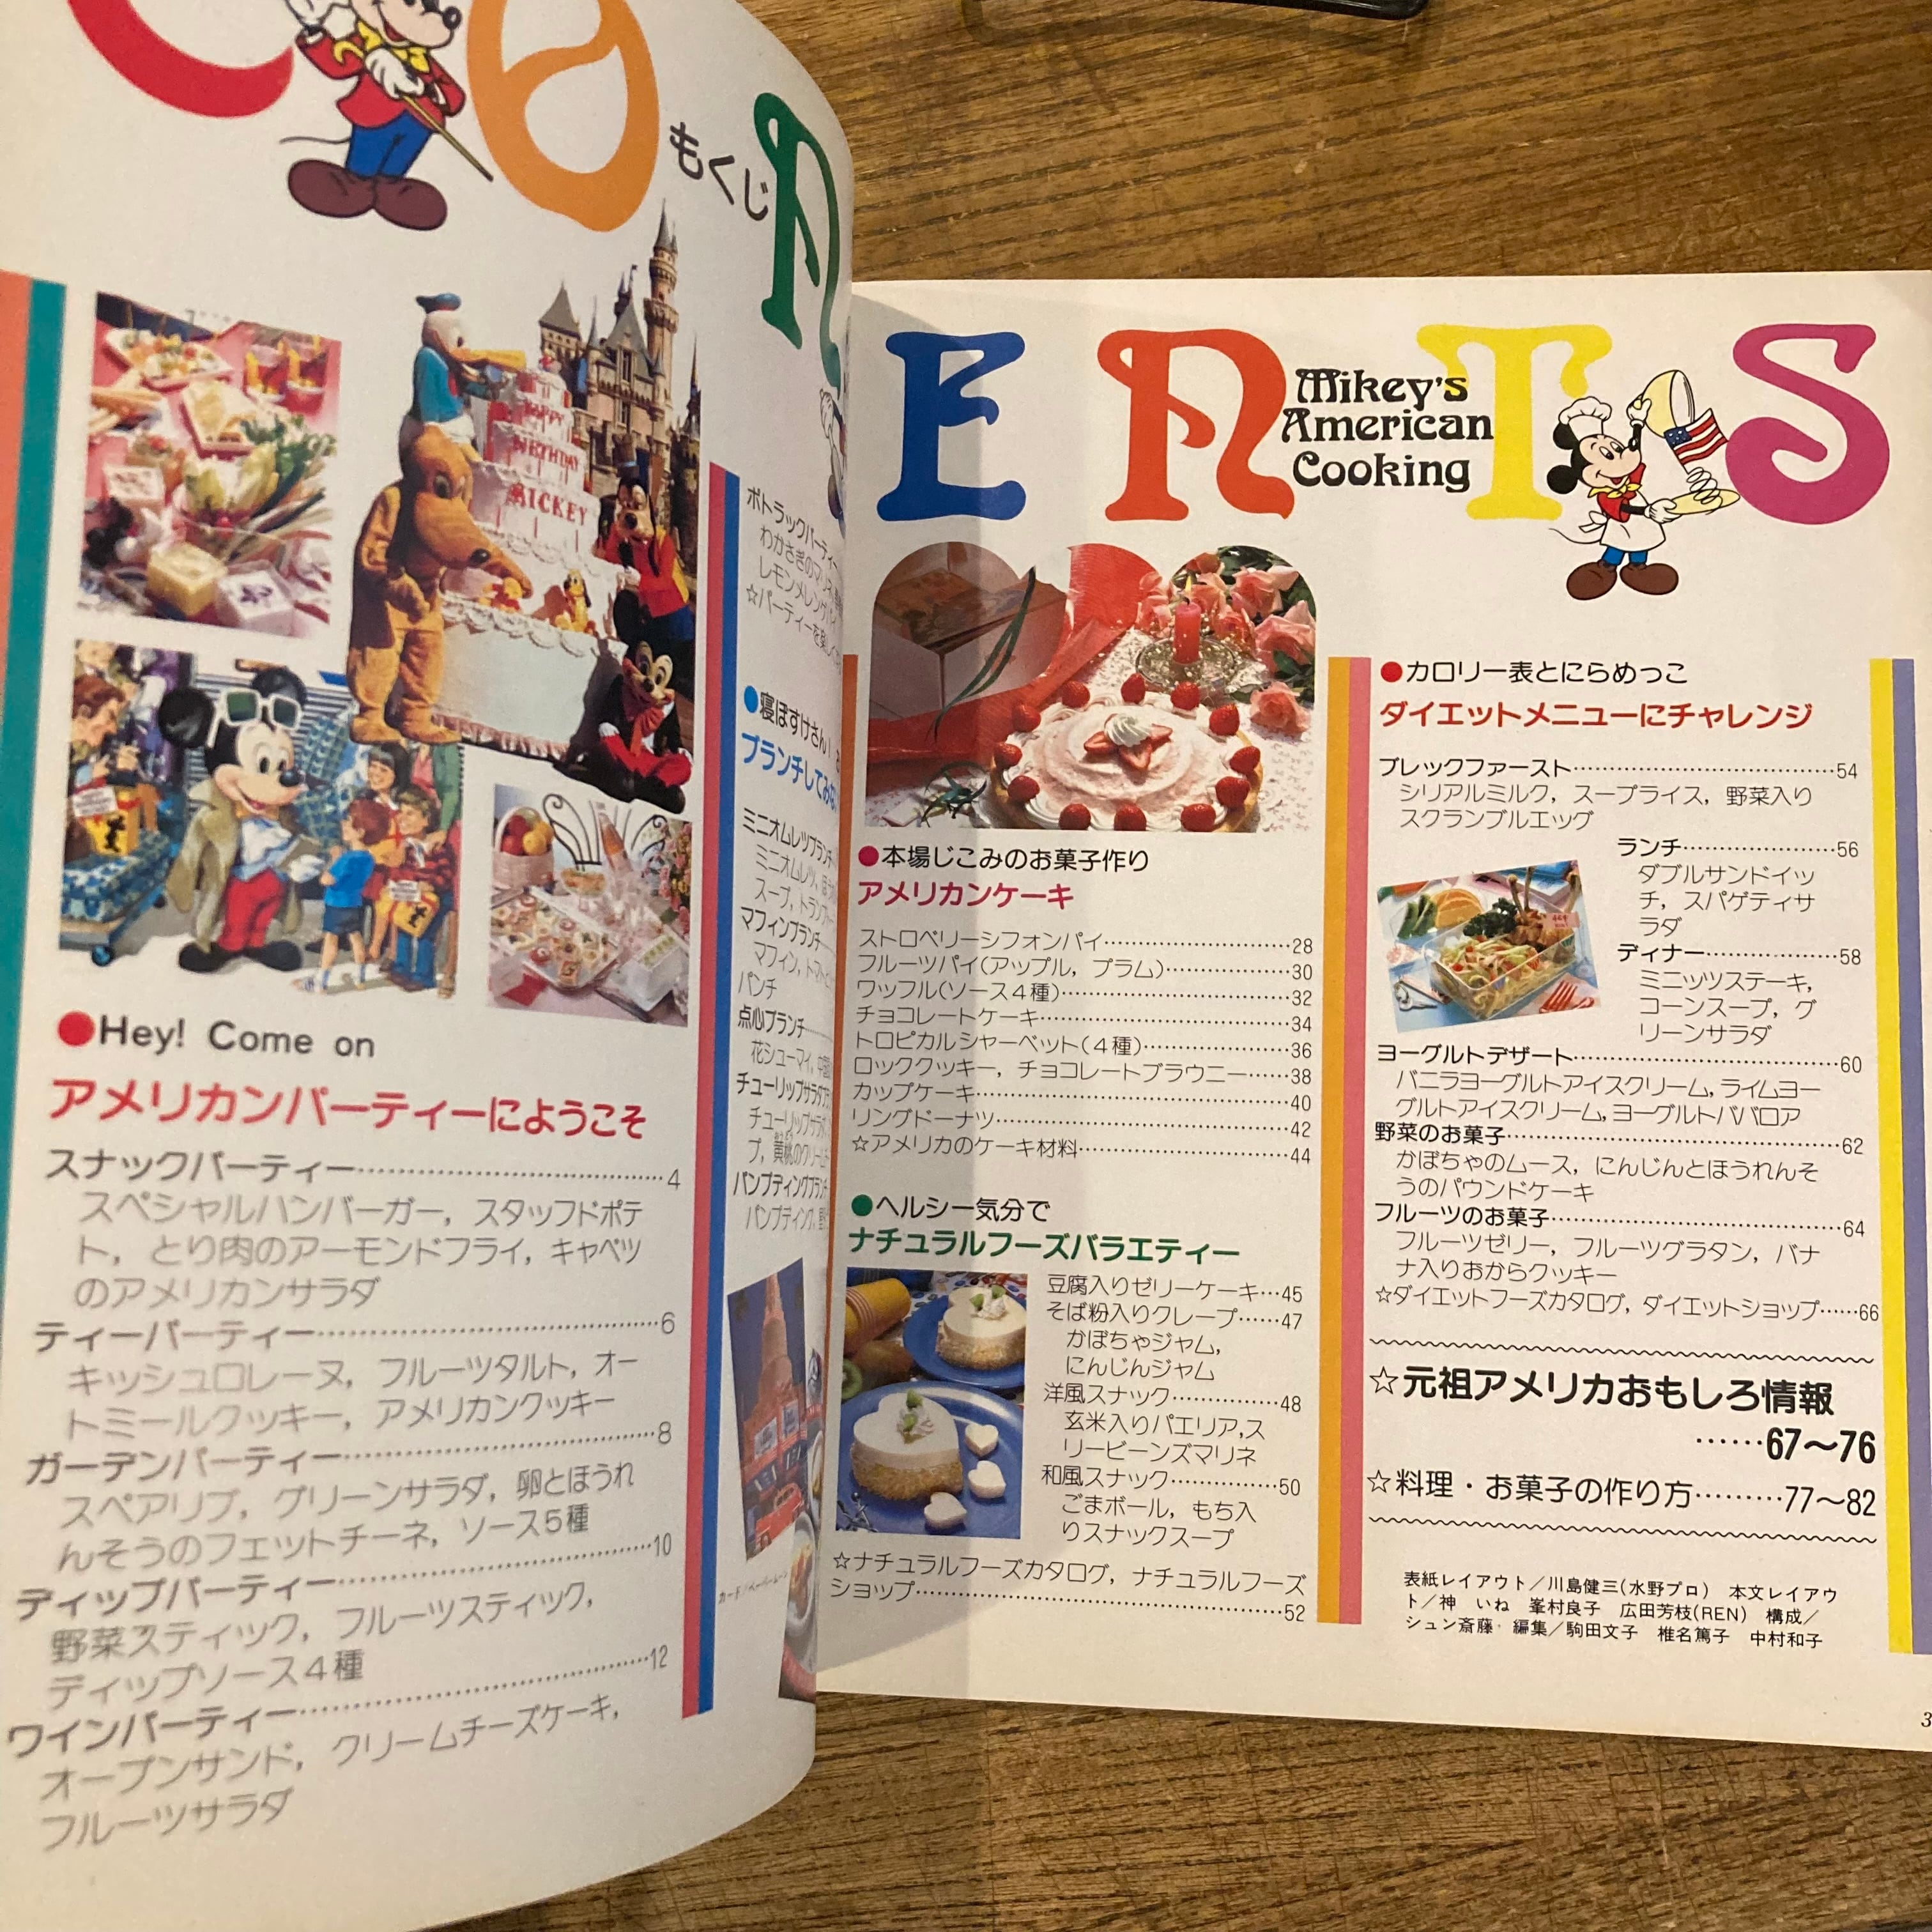 CONTENTS
もくじ
Mikey's
American
Cooking
HAPPY
BIRTHDAY
MICKEY
●Hey! Come on
アメリカンパーティーにようこそ
スナックパーティー……4
スペシャルハンバーガー，スタッフドポテ
ト，とり肉のアーモンドフライ，キャベツ
のアメリカンサラダ
ティーパーティー……6
キッシュロレーヌ，フルーツタルト，オー
トミールクッキー，アメリカンクッキー
ガーデンパーティー……8
スペアリブ，グリーンサラダ，卵とほうれ
んそうのフェットチーネ，ソース5種
ディップパーティー……10
野菜スティック，フルーツスティック，
ディップソース4種
ワインパーティー……12
オープンサンド，クリームチーズケーキ，
フルーツサラダ
ポトラックパーティー
わかさぎのマリネ
レモンメレンゲパイ
☆パーティーを楽しく
●寝ぼすけさん！
ブランチしてみない
ミニオムレツブランチ
ミニオムレツ，
スープ，
マフィンブランチ
マフィン，トマト
パンチ
点心ブランチ
花シューマイ，
チューリップサラダ
チューリップサラダ
プ，黄桃のクリーム
パンプディングブランチ
パンプディング，
●本場じこみのお菓子作り
アメリカンケーキ
ストロベリーシフォンパイ……28
フルーツパイ(アップル，プラム)……30
ワッフル(ソース4種)……32
チョコレートケーキ……34
トロピカルシャーベット(4種)……36
ロッククッキー，チョコレートブラウニー……38
カップケーキ……40
リングドーナツ……42
☆アメリカのケーキ材料……44
●ヘルシー気分で
ナチュラルフーズバラエティー
豆腐入りゼリーケーキ…45
そば粉入りクレープ……47
かぼちゃジャム，
にんじんジャム
洋風スナック……48
玄米入りパエリア,ス
リービーンズマリネ
和風スナック……50
ごまボール，もち入
りスナックスープ
☆ナチュラルフーズカタログ，ナチュラルフーズ
ショップ……52
●カロリー表とにらめっこ
ダイエットメニューにチャレンジ
ブレックファースト……54
シリアルミルク，スープライス，野菜入り
スクランブルエッグ
ランチ……56
ダブルサンドイッ
チ，スパゲティサ
ラダ
ディナー……58
ミニッツステーキ，
コーンスープ，グ
リーンサラダ
ヨーグルトデザート……60
バニラヨーグルトアイスクリーム,ライムヨー
グルトアイスクリーム,ヨーグルトババロア
野菜のお菓子……62
かぼちゃのムース，にんじんとほうれんそ
うのパウンドケーキ
フルーツのお菓子……64
フルーツゼリー，フルーツグラタン，バナ
ナ入りおからクッキー
☆ダイエットフーズカタログ，ダイエットショップ……66
☆元祖アメリカおもしろ情報
……67〜76
☆料理・お菓子の作り方………77〜82
表紙レイアウト／川島健三(水野プロ)　本文レイアウ
ト／神　いね　峯村良子　広田芳枝(REN)　構成／
シュン斎藤　編集／駒田文子　椎名篤子　中村和子
3